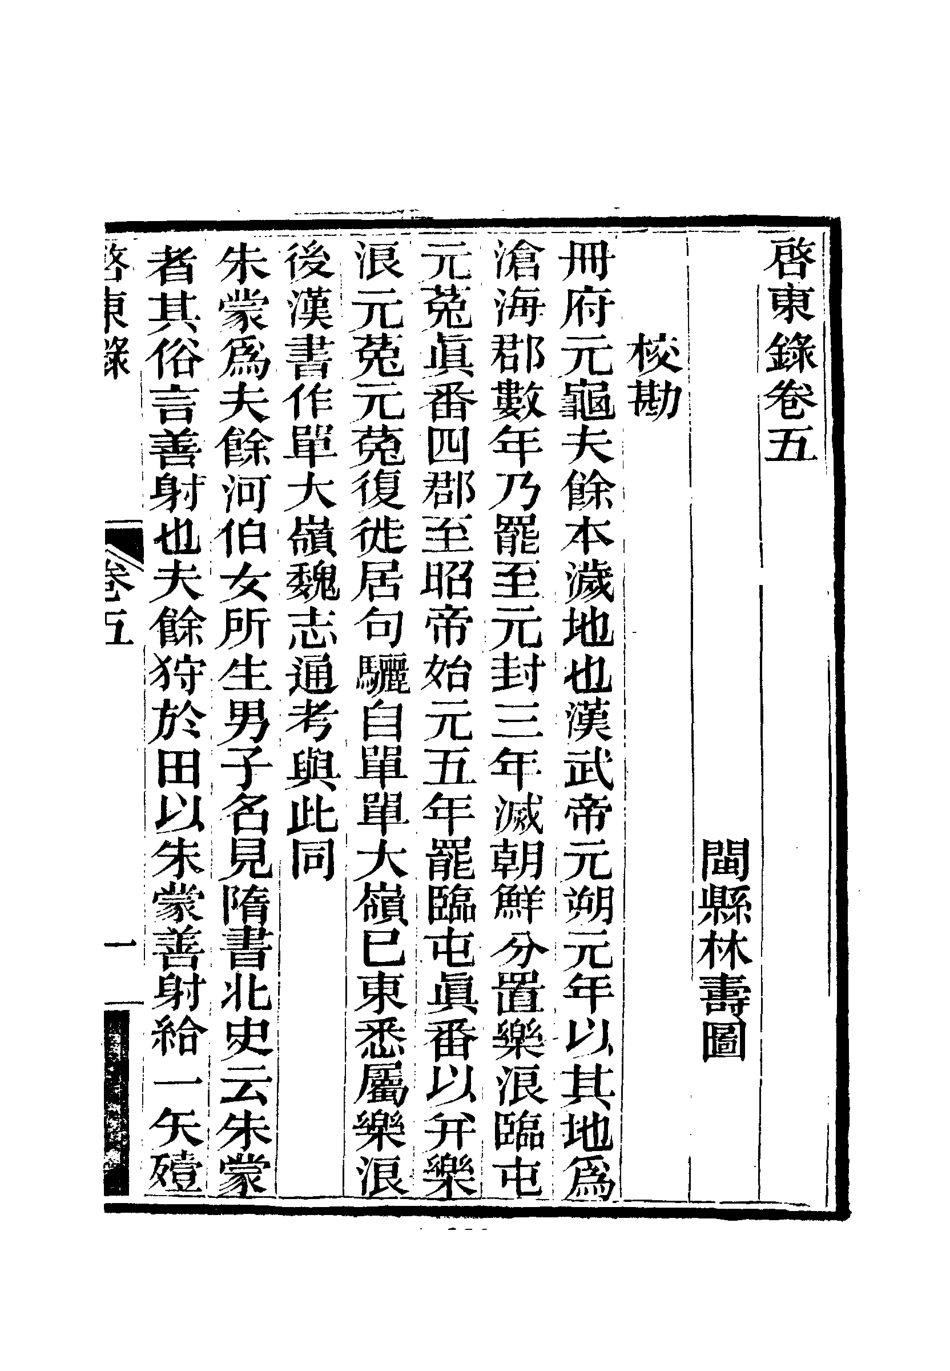 啓東錄卷五
閩縣林壽圖
校勘
冊府元龜夫餘本濊地也漢武帝元朔元年以其地爲
滄海郡數年乃罷至元封三年滅朝鮮分置樂浪臨屯
元菟眞番四郡至昭帝始元五年罷臨屯眞番以幷樂
浪元菟元菟復徙居句驪自單單大嶺已東悉屬樂浪
後漢書作單大嶺魏志通考與此同
朱蒙爲夫餘河伯女所生男子名見隋書北史云朱蒙
者其俗言善射也夫餘狩於田以朱蒙善射給一矢殪
啓東錄
卷五
一